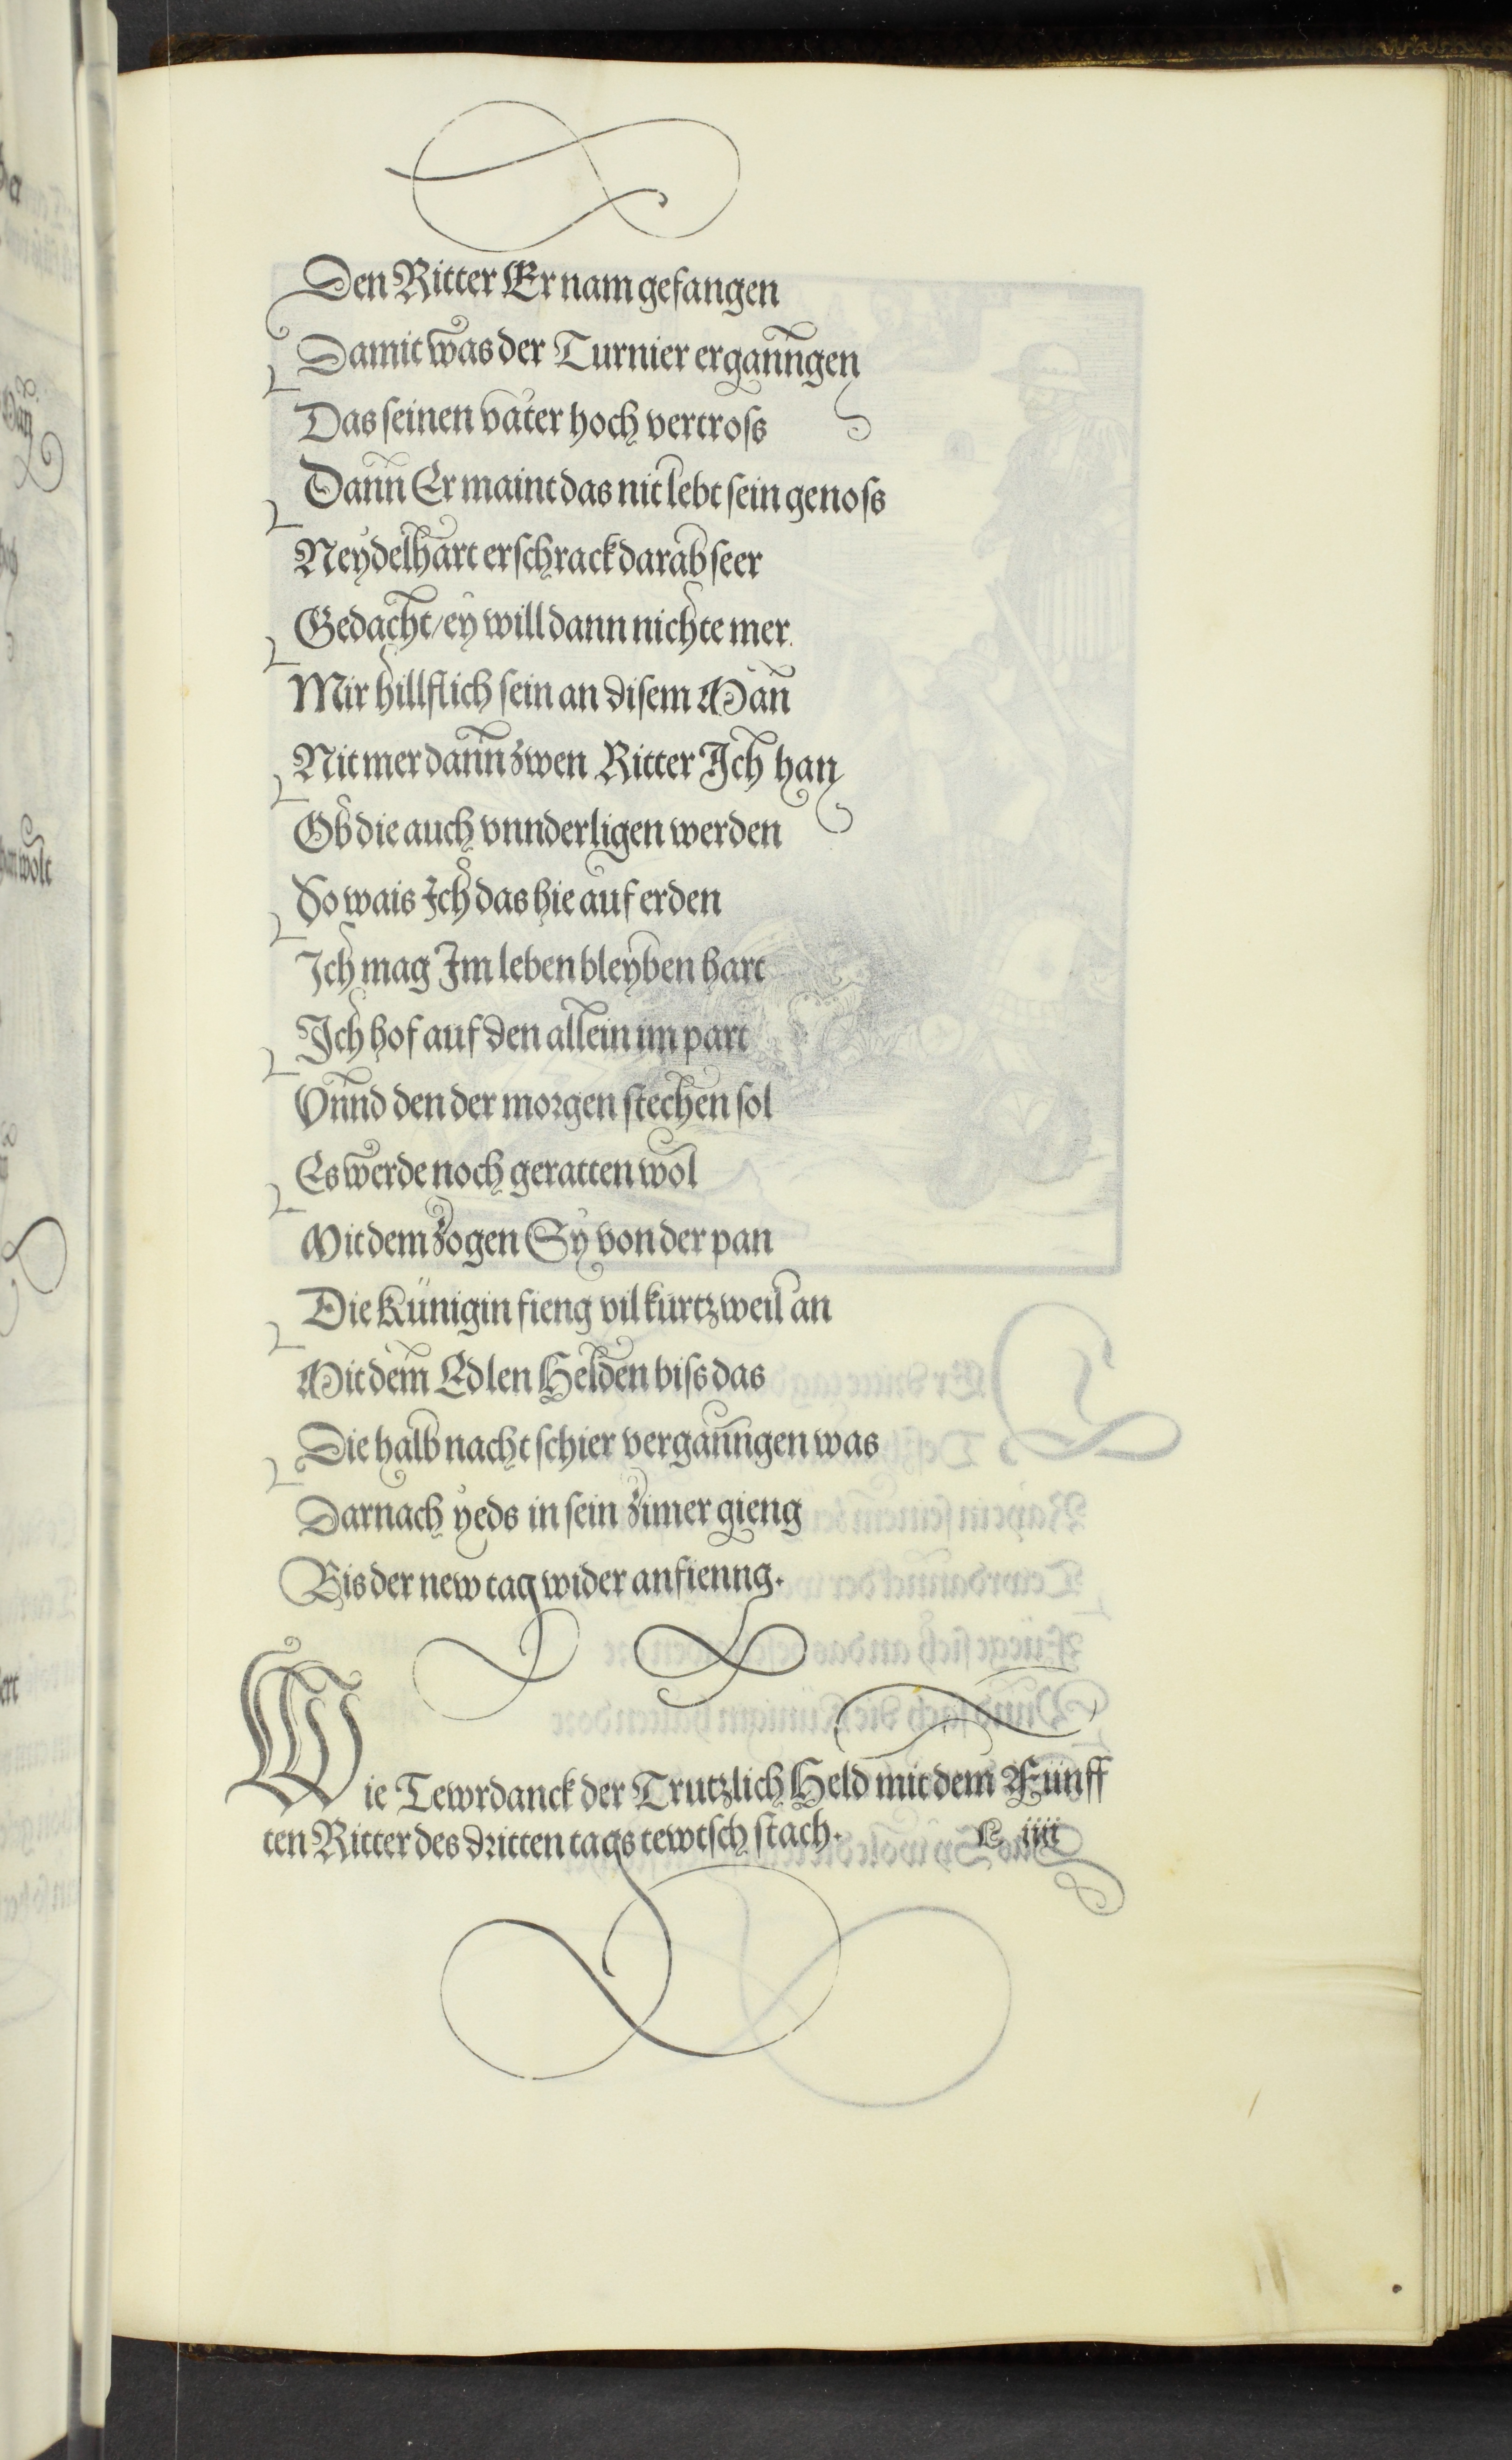 Den Ritter Er nam gefangen
Damit was der Turnier erganngen
Das seinen vater hoch vertross
Dann Er maint das nit lebt sein genoss
Neydelhart erschrack darab seer
Gedacht/ ey will dann nichte mer
Mir hillflich sein an disem Man
Nit mer dann zwen Ritter Ich han
Ob die auch vnnderligen werden
So wais Ich das hie auf erden
Ich mag Im leben bleyben hart
Ich hof auf den allein im part
Vnnd den der morgen stechen sol
Es werde noch geratten wol
Mit dem zogen Sy von der pan
Die Künigin fieng vil kurtzweil an
Mit dem Edlen Helden biss das
Die halb nacht schier verganngen was
Darnach yeds in sein zimer gieng
Bis der new tag wider anfienng.
Wie Tewrdanck der Trutzlich Held mit dem Fünff
ten Ritter des dritten tags tewtsch stach. L iiii